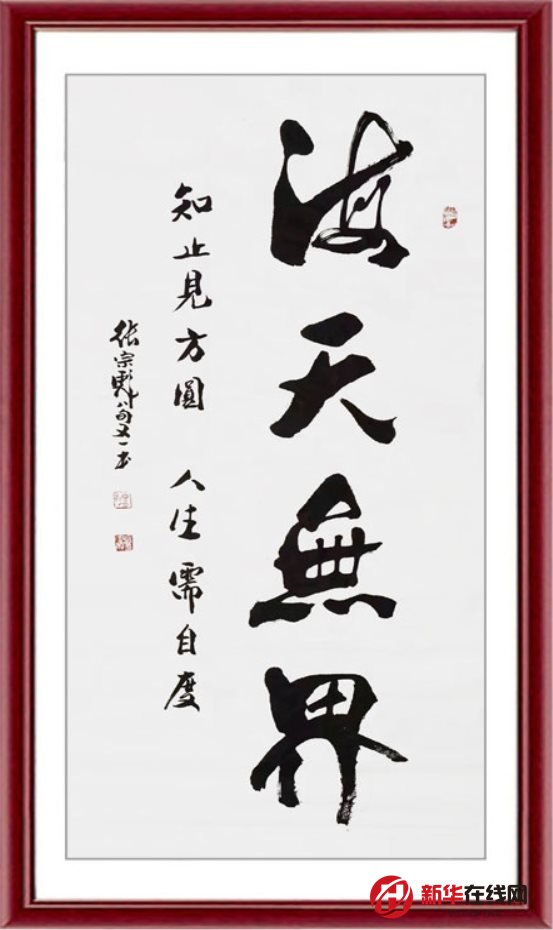 海天無界
知止見方圓 人生需自度
張宗彪八旬又一書
新华在线网